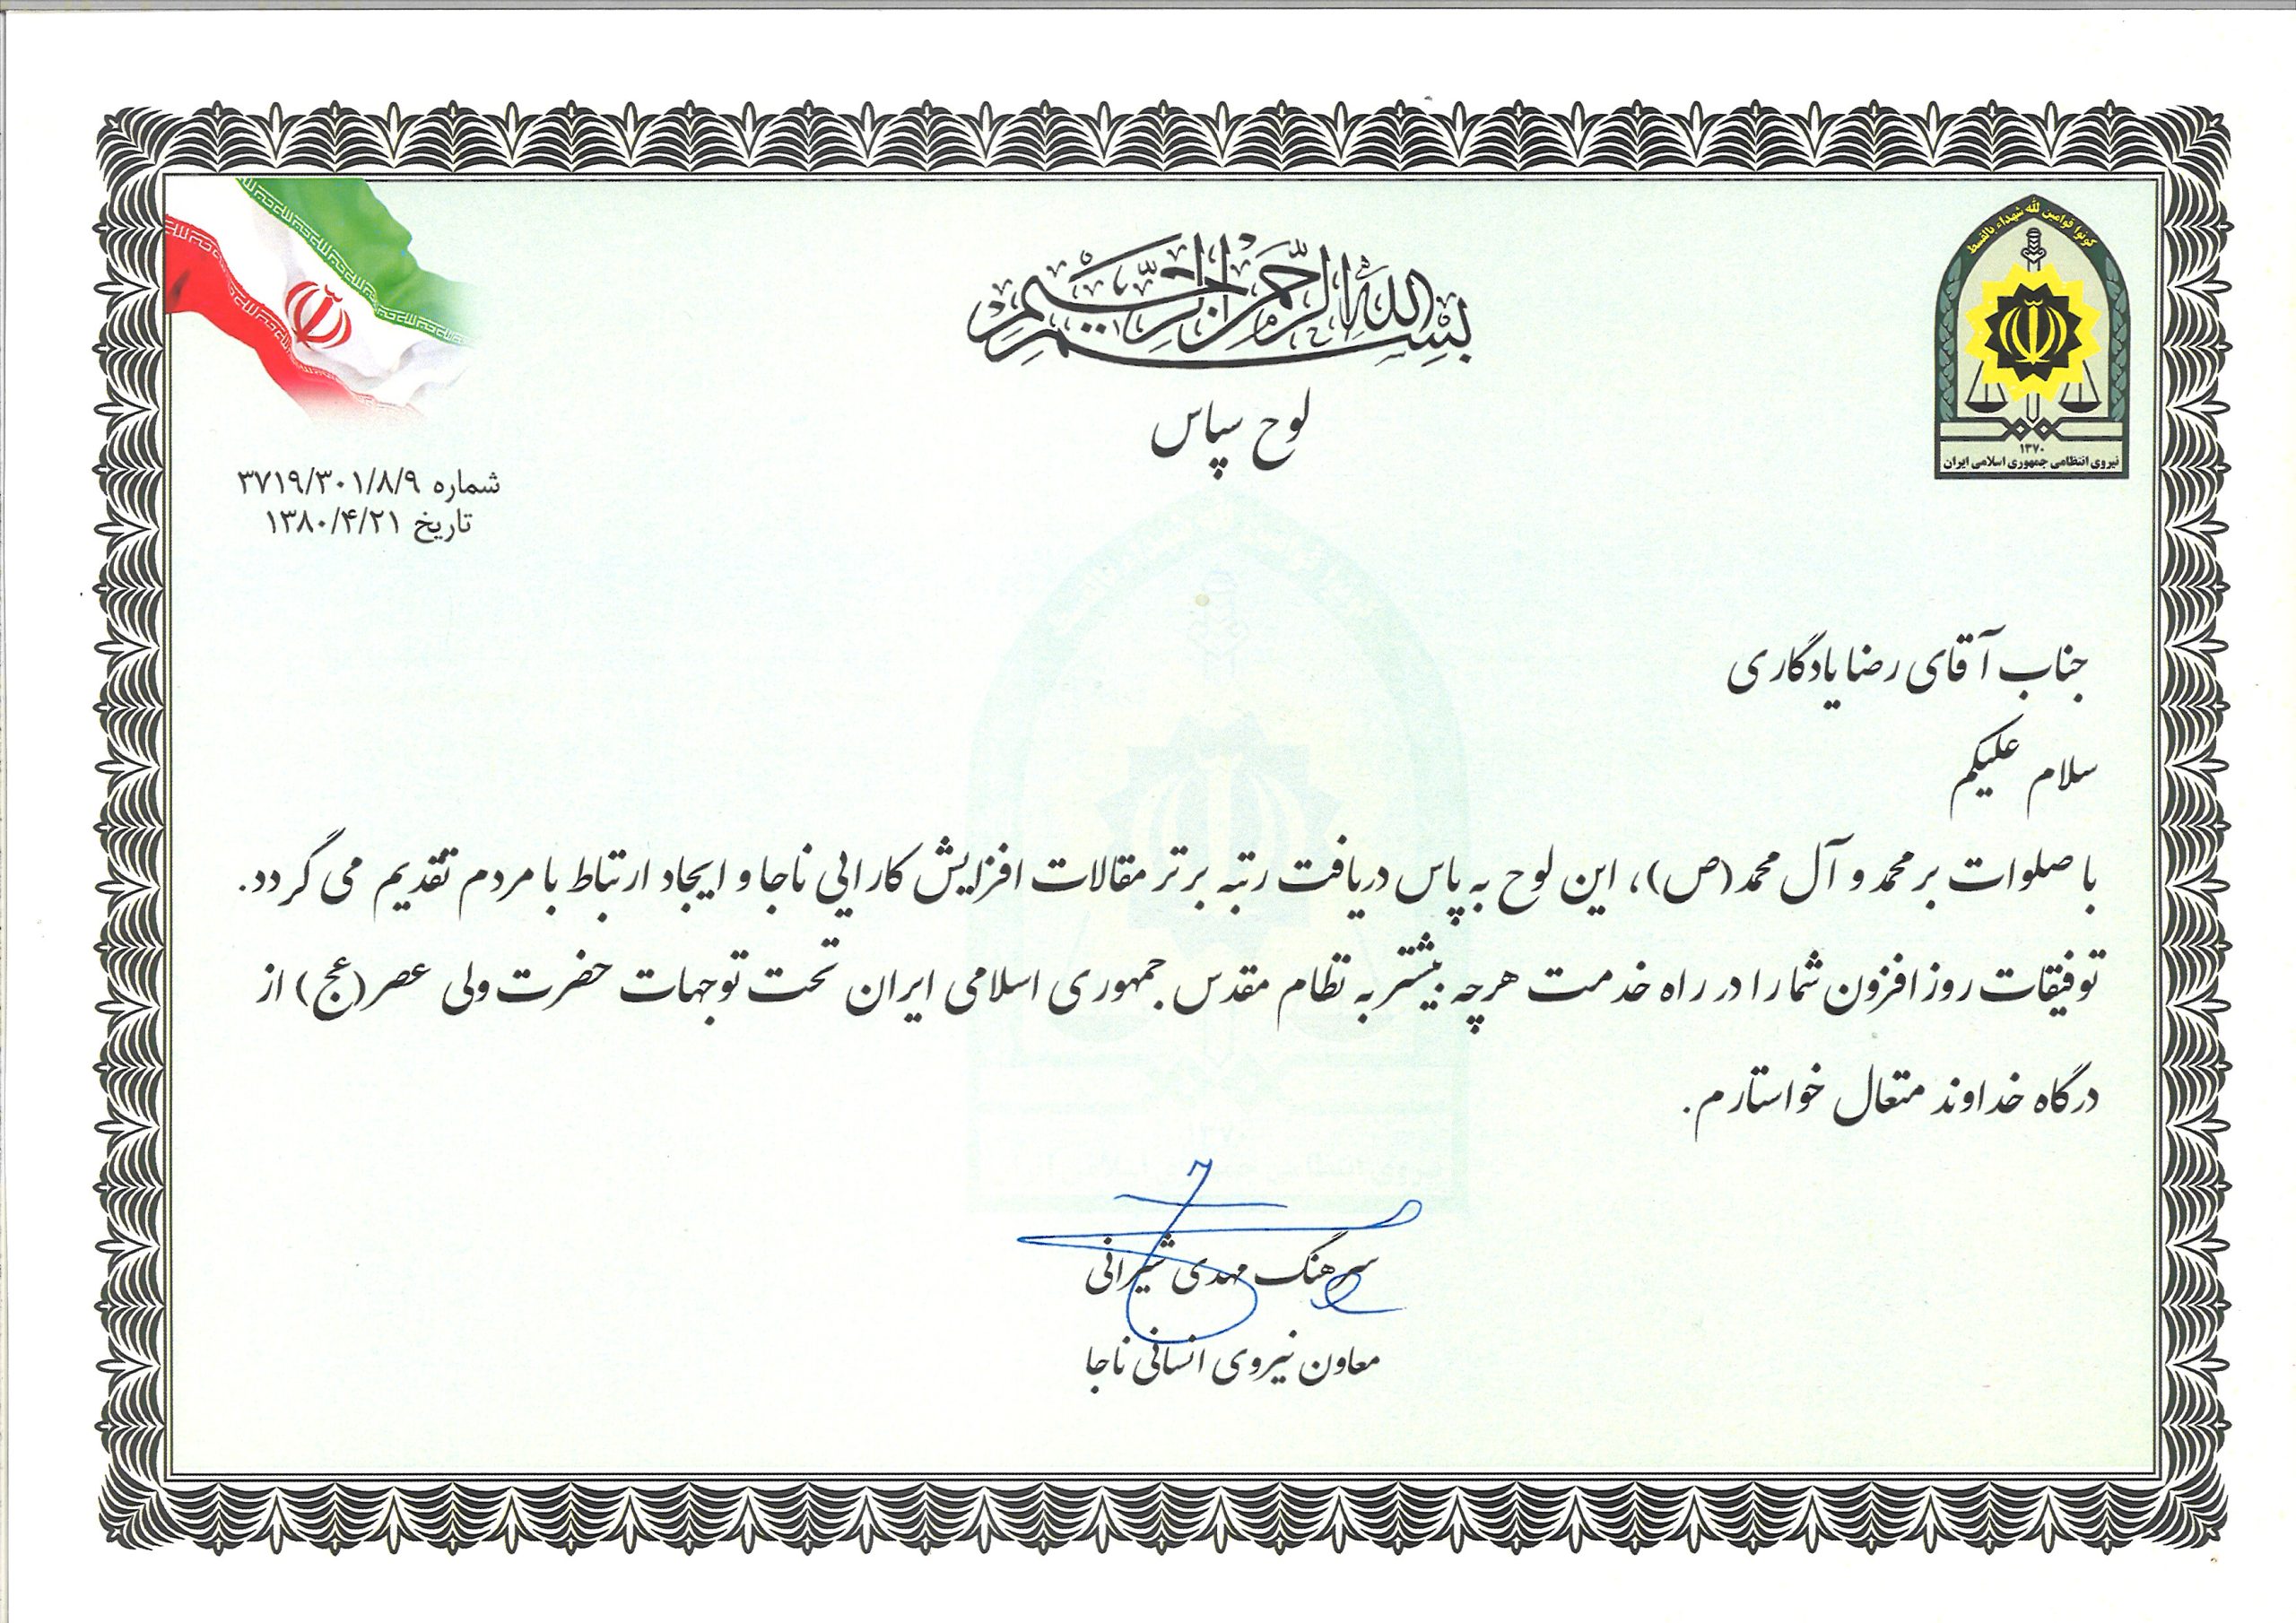 بسم الله الرحمن الرحیم
لوح سپاس
کونوا قوامین لله شهداء بالقسط
۱۳۷۰
نیروی انتظامی جمهوری اسلامی ایران
شماره ۳۷۱۹/۳۰۱/۸/۹
تاریخ ۱۳۸۰/۴/۲۱
جناب آقای رضا یادگاری
سلام علیکم
با صلوات بر محمد و آل محمد (ص)، این لوح به پاس دریافت رتبه برتر مقالات افزایش کارایی ناجا و ایجاد ارتباط با مردم تقدیم می گردد.
توفیقات روز افزون شما را در راه خدمت هرچه بیشتر به نظام مقدس جمهوری اسلامی ایران تحت توجهات حضرت ولی عصر (عج) از
درگاه خداوند متعال خواستارم.
سرهنگ مهدی شیرانی
معاون نیروی انسانی ناجا